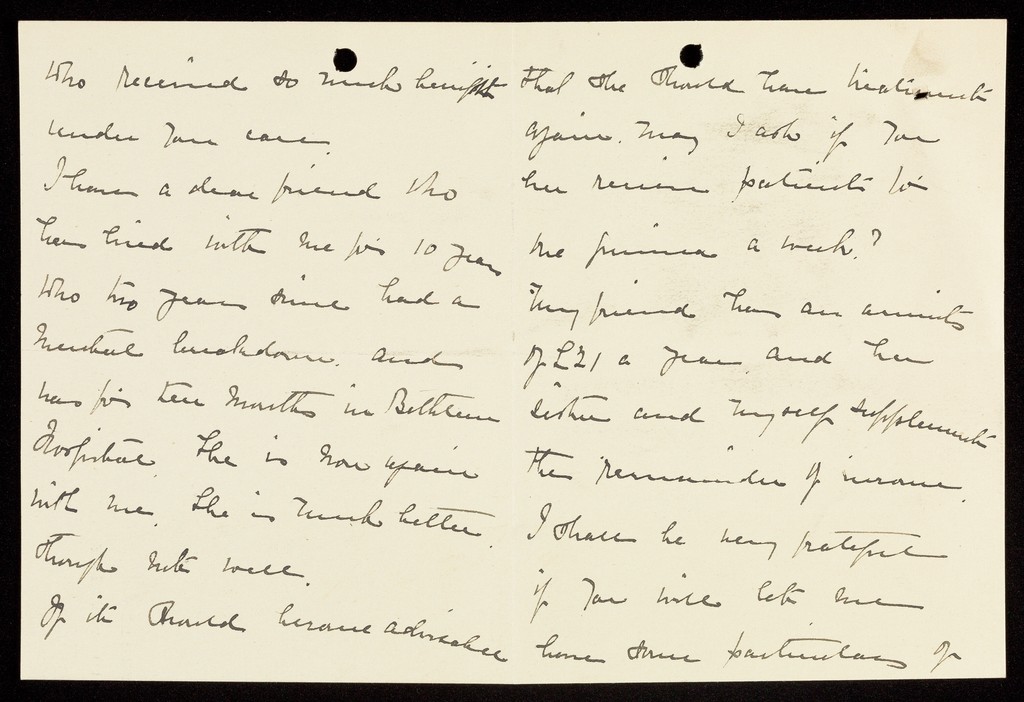 who received so much benefit
under your care.
I have a dear friend who
has lived with me for 10 years
who two years since had a
mental breakdown, and
was for ten months in Bethlem
Hospital. She is now again
with me. She is much better,
though not well.
If it should become advisable
that she should have treatment
again. May I ask if you
ever receive patients for
one guinea a week?
My friend has an annuity
of £21 a year, and her
sister and myself supplement
the remainder of income.
I shall be very grateful
if you will let me
have some particulars of